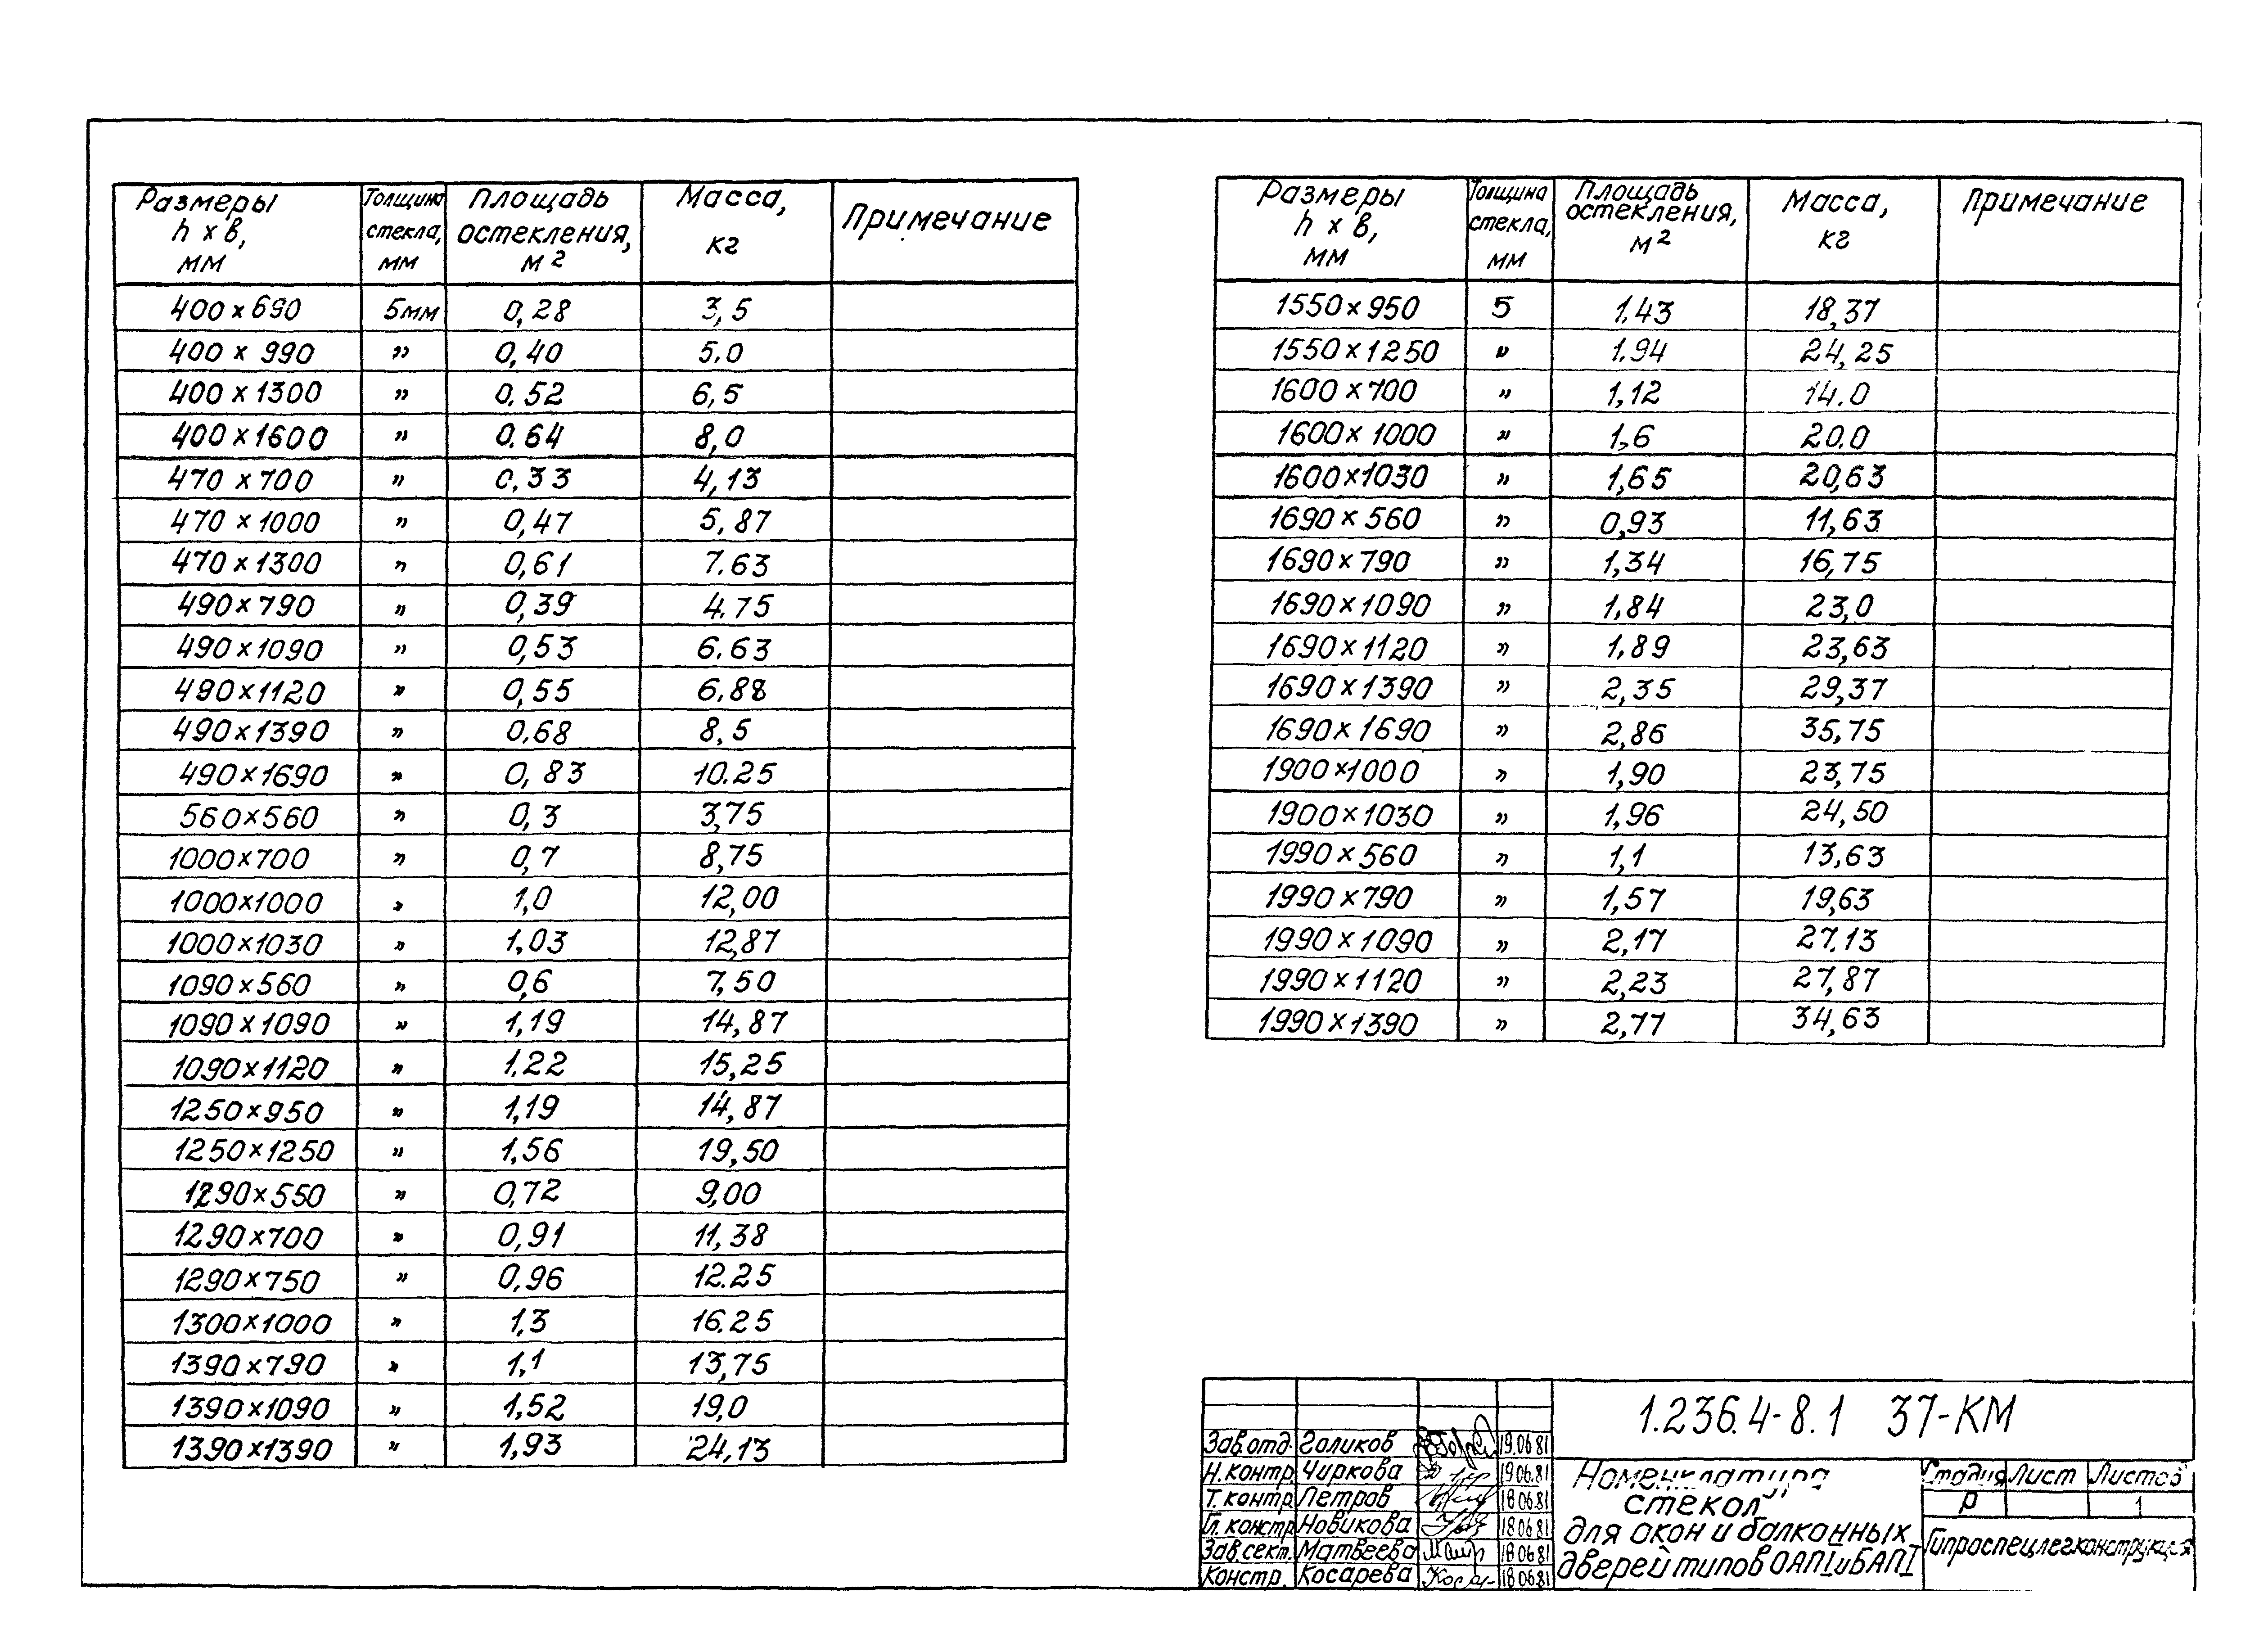 Размеры h x в, мм | Толщина стекла, мм | Площадь остекления, м² | Масса, кг | Примечание
400 x 690 5мм 0,28 3,5
400 x 990 " 0,40 5.0
400 x 1300 " 0.52 6,5
400 x 1600 " 0.64 8,0
470 x 700 " 0,33 4,13
470 x 1000 " 0,47 5,87
470 x 1300 " 0,61 7.63
490 x 790 " 0,39 4.75
490 x 1090 " 0,53 6.63
490 x 1120 " 0,55 6.88
490 x 1390 " 0,68 8,5
490 x 1690 " 0,83 10.25
560 x 560 " 0,3 3,75
1000 x 700 " 0,7 8,75
1000 x 1000 " 1,0 12,00
1000 x 1030 " 1,03 12,87
1090 x 560 " 0,6 7,50
1090 x 1090 " 1,19 14,87
1090 x 1120 " 1.22 15,25
1250 x 950 " 1,19 14,87
1250 x 1250 " 1,56 19,50
1290 x 550 " 0,72 9,00
1290 x 700 " 0,91 11,38
1290 x 750 " 0,96 12.25
1300 x 1000 " 1,3 16.25
1390 x 790 " 1,1 13,75
1390 x 1090 " 1,52 19,0
1390 x 1390 " 1,93 24,13
Размеры h x в, мм | Толщина стекла, мм | Площадь остекления, м² | Масса, кг | Примечание
1550 x 950 5 1,43 18,37
1550 x 1250 " 1.94 24,25
1600 x 700 " 1,12 14.0
1600 x 1000 " 1,6 20.0
1600 x 1030 " 1,65 20,63
1690 x 560 " 0,93 11,63
1690 x 790 " 1,34 16,75
1690 x 1090 " 1,84 23,0
1690 x 1120 " 1,89 23,63
1690 x 1390 " 2,35 29,37
1690 x 1690 " 2,86 35,75
1900 x 1000 " 1,90 23,75
1900 x 1030 " 1,96 24,50
1990 x 560 " 1,1 13,63
1990 x 790 " 1,57 19,63
1990 x 1090 " 2,17 27.13
1990 x 1120 " 2,23 27,87
1990 x 1390 " 2,77 34,63
1.236.4-8.1 37-КМ
Зав.отд. Голиков 19.06.81
Н.контр. Чиркова 19.06.81
Т.контр. Петров 18.06.81
Гл.констр. Новикова 18.06.81
Зав.сект. Матвеева 18.06.81
Констр. Косарева 18.06.81
Номенклатура
стекол
для окон и балконных
дверей типов ОАПI и БАПI
Стадия Лист Листов
Р 1
Гипроспецлегконструкция